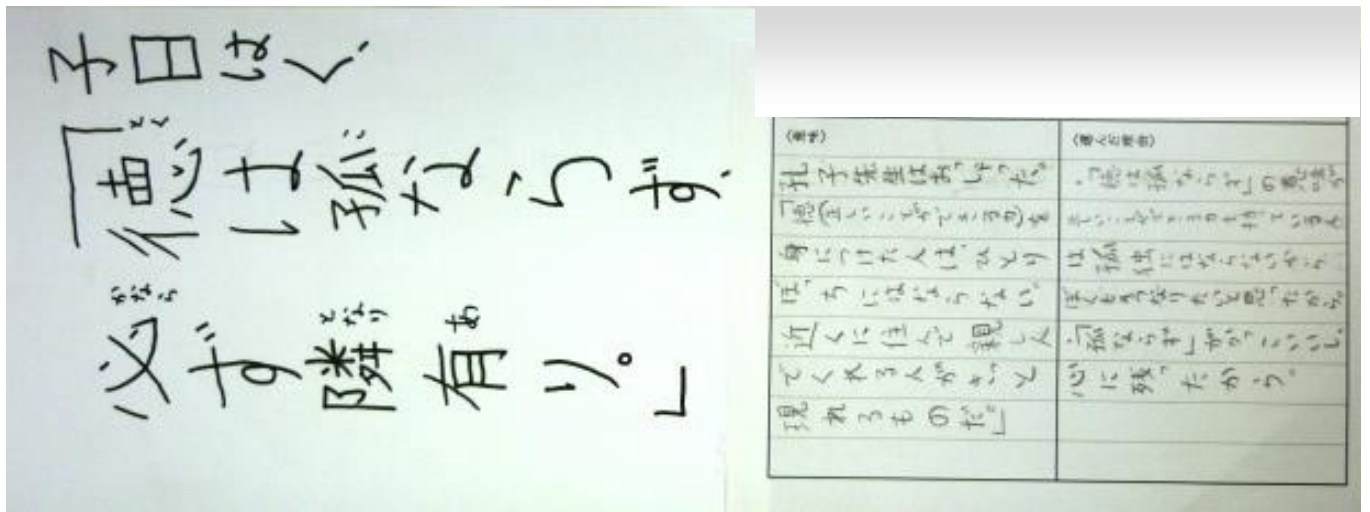 子曰はく、
とく こ
「徳は孤ならず、
かなら となり あ
必ず隣有り。」
〈意味〉
孔子先生はおっしゃった。
「徳(正しいことができる力)を
身につけた人は、ひとり
ぼっちにはならない。
近くに住んで親しん
でくれる人がきっと
現れるものだ。」
〈選んだ理由〉
・「徳は孤ならず」の意味が
正しいことができる力を持っている人
は孤独にはならないから、
ぼくもそうなりたいと思ったから。
・「孤ならず」がかっこいいし、
心に残ったから。